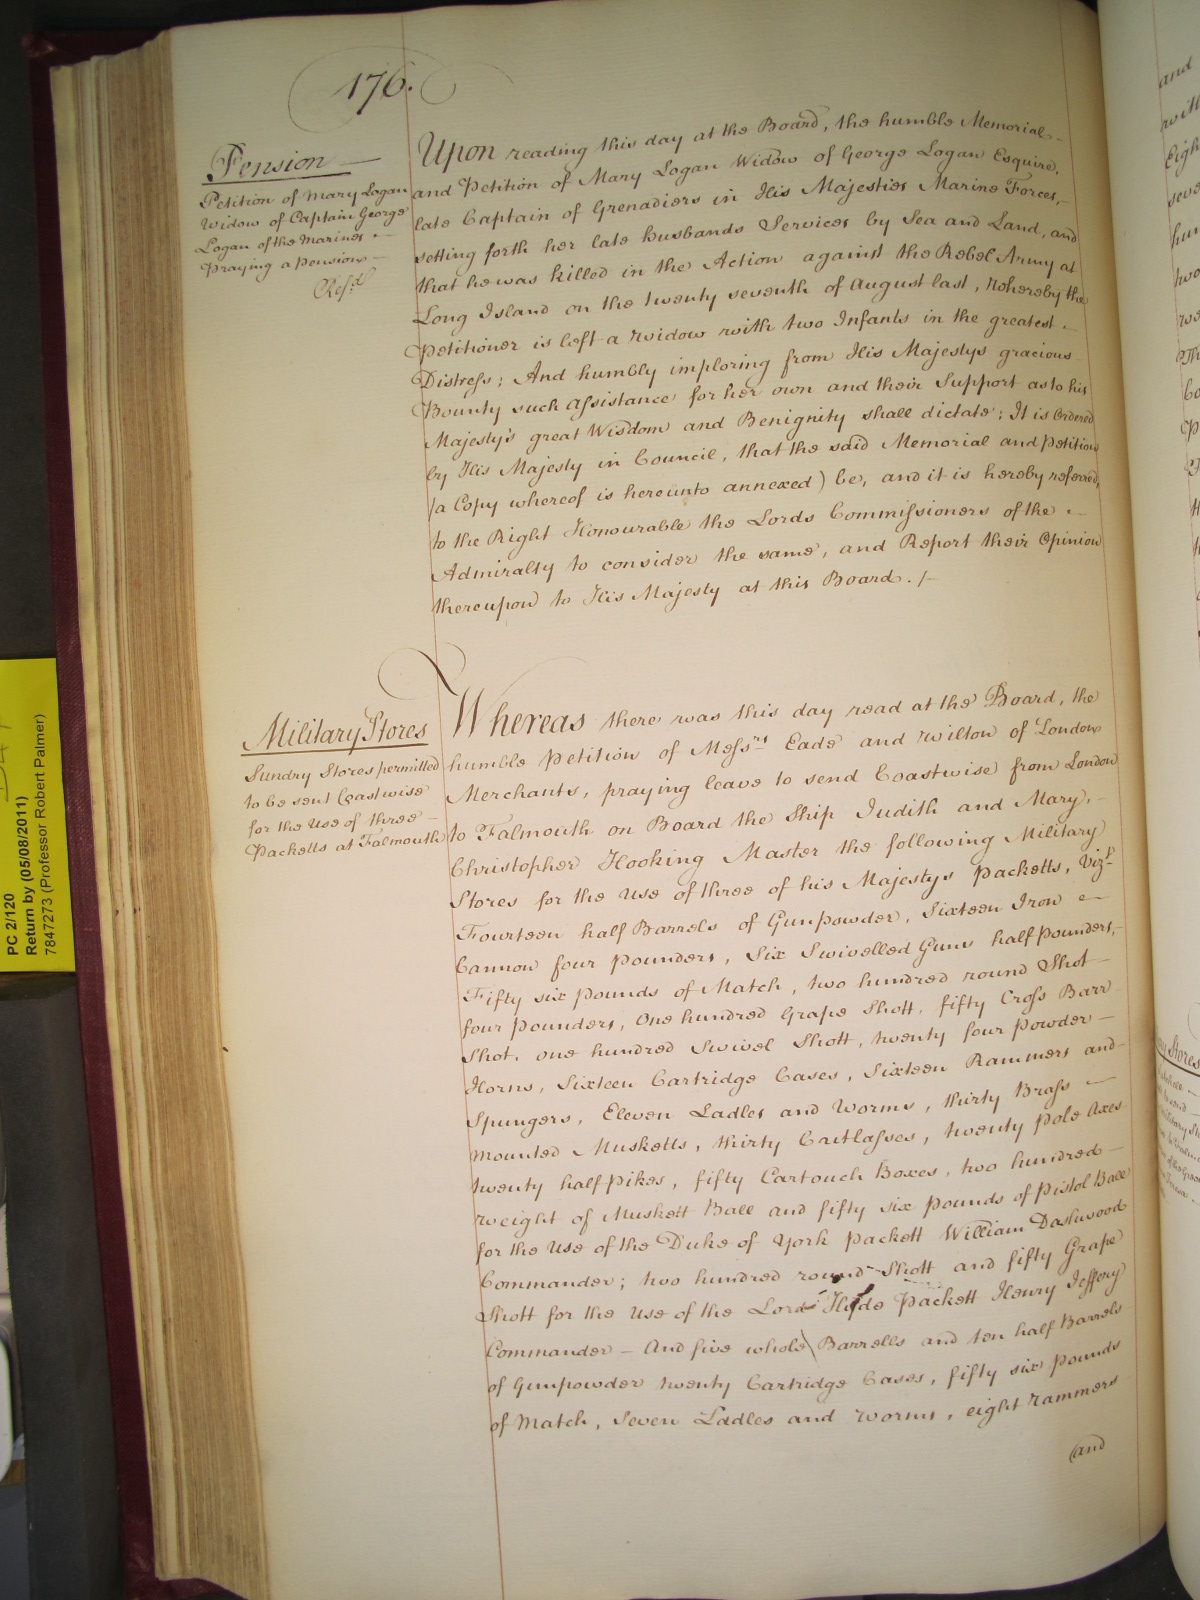 176.
Pension —
Petition of Mary Logan
Widow of Captain George
Logan of the Marines —
Praying a Pension —
Ref.d
Upon reading this day at the Board, the humble Memorial —
and Petition of Mary Logan Widow of George Logan Esquire,
late Captain of Grenadiers in His Majesties Marine Forces, —
setting forth her late husbands Services by Sea and Land, and
that he was killed in the Action against the Rebel Army at
Long Island on the twenty seventh of August last, whereby the
Petitioner is left a Widow with two Infants in the greatest —
Distress; And humbly imploring from His Majestys gracious
Bounty such assistance for her own and their Support as to his
Majesty's great Wisdom and Benignity shall dictate: It is Ordered
by His Majesty in Council, that the said Memorial and Petition
(a Copy whereof is hereunto annexed) be, and it is hereby referred,
to the Right Honourable the Lords Commissioners of the —
Admiralty to consider the same, and Report their Opinion
thereupon to His Majesty at this Board. /-
Military Stores
Sundry Stores permitted
to be sent Coastwise
for the Use of three —
Packetts at Falmouth
Whereas there was this day read at the Board, the
humble Petition of Messrs Eade and Wilton of London
Merchants, praying leave to send Coastwise from London
to Falmouth on Board the Ship Judith and Mary, —
Christopher Hooking Master the following Military
Stores for the Use of three of his Majestys Packetts, Vizt
Fourteen half Barrels of Gunpowder, Sixteen Iron —
Cannon four pounders, Six Swivelled Guns half pounders, —
Fifty six pounds of Match, two hundred round Shot —
four pounders, One hundred Grape Shott, fifty Cross Barr
Shot, one hundred Swivel Shott, twenty four Powder —
Horns, Sixteen Cartridge Cases, Sixteen Rammers and
Spungers, Eleven Ladles and Worms, thirty Brass —
mounted Musketts, thirty Cutlasses, twenty Pole Axes
twenty half Pikes, fifty Cartouch Boxes, two hundred —
weight of Muskett Ball and fifty six pounds of Pistol Ball
for the Use of the Duke of York Packett William Dashwood
Commander; two hundred round Shott and fifty Grape
Shott for the Use of the Lord Hyde Packett Henry Jeffery
Commander — And five whole Barrells and ten half Barrels
of Gunpowder twenty Cartridge Cases, fifty six Pounds
of Match, Seven Ladles and Worms, eight rammers
(and
PC 2/120
Return by (05/08/2011)
7847273 (Professor Robert Palmer)